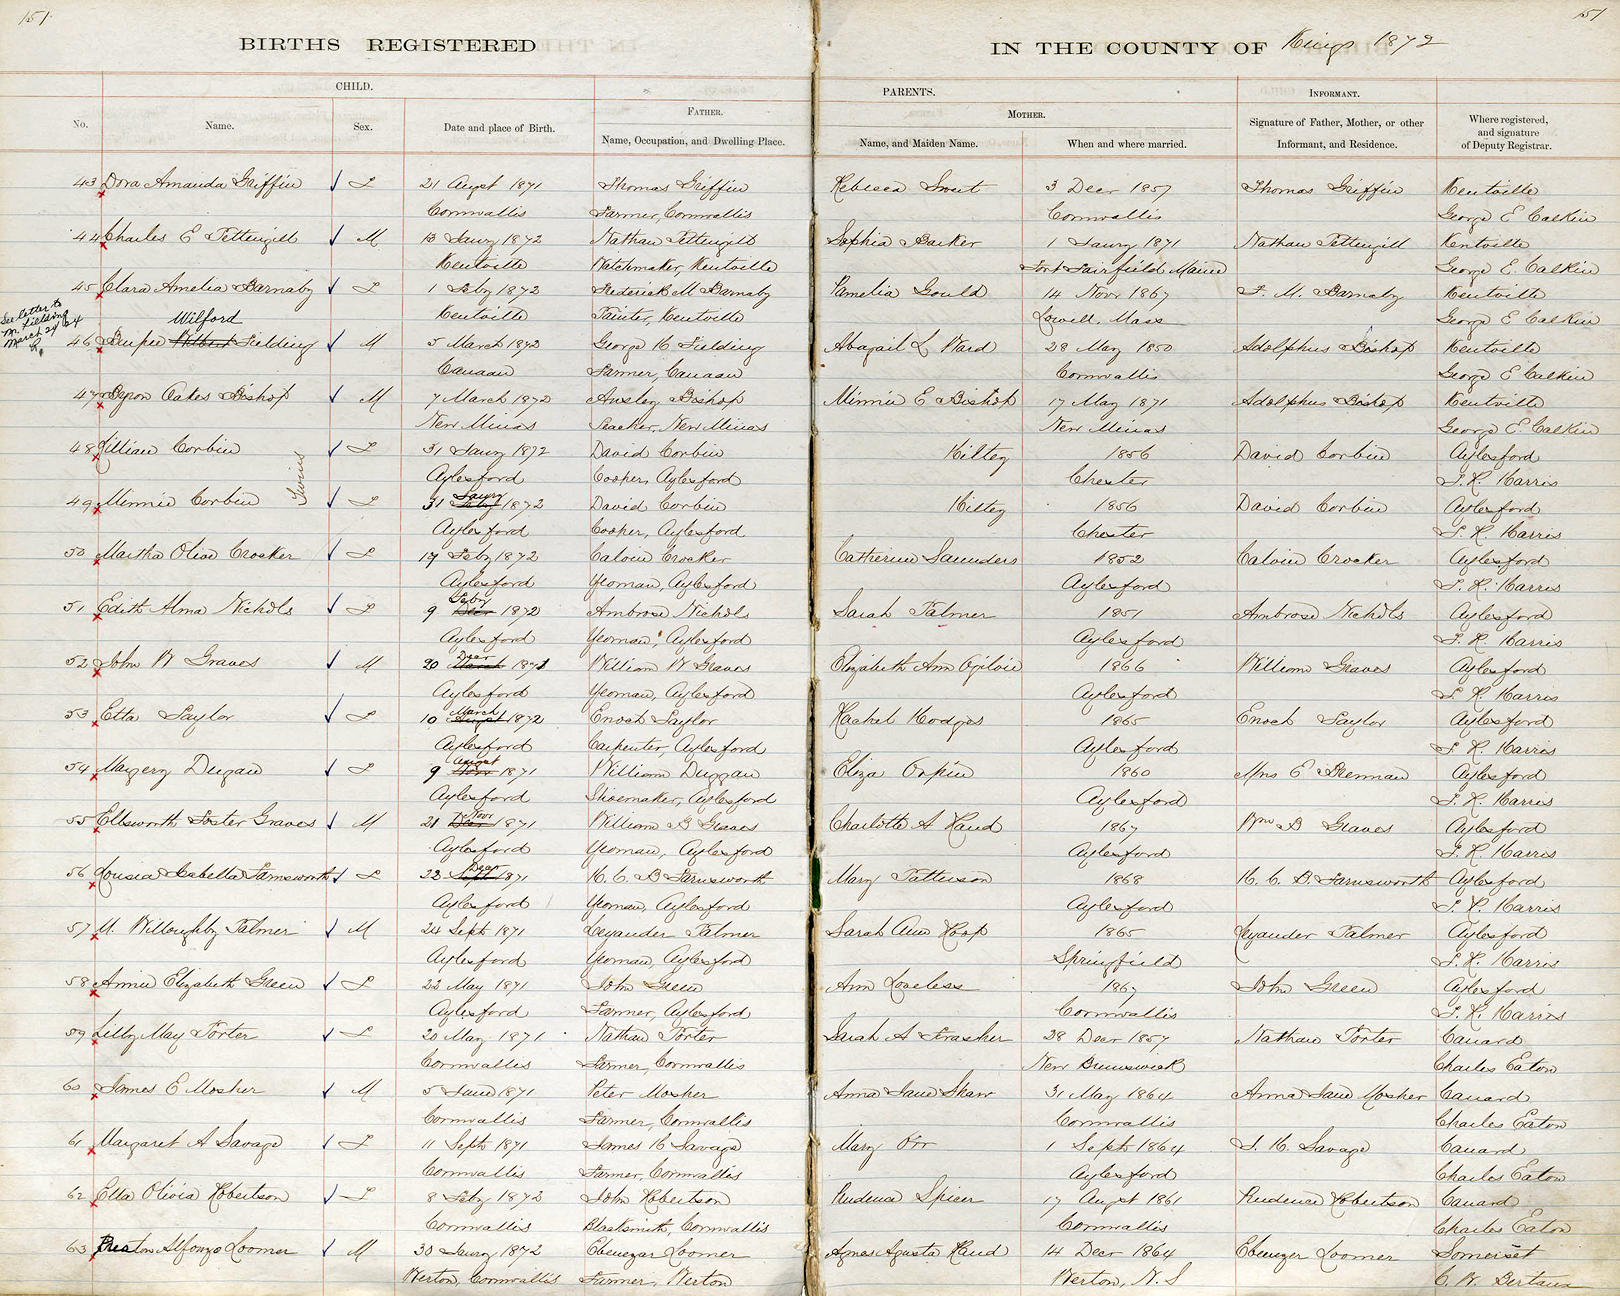 151
151
BIRTHS REGISTERED
IN THE COUNTY OF Kings 1872
CHILD.
PARENTS.
INFORMANT.
FATHER.
MOTHER.
No.
Name.
Sex.
Date and place of Birth.
Name, Occupation, and Dwelling Place.
Name, and Maiden Name.
When and where married.
Signature of Father, Mother, or other Informant, and Residence.
Where registered, and signature of Deputy Registrar.
43 Dora Amanda Griffin F 21 Augst 1871 Thomas Griffin Rebecca 3 Decr 1857 Thomas Griffin Kentville
Cornwallis Farmer, Cornwallis Cornwallis George E Calkin
44 Charles E Pettengill M 13 Jany 1872 Nathan Pettengill Sophia Barker 1 Jany 1871 Nathan Pettengill Kentville
Kentville Watchmaker, Kentville Fort Fairfield Maine George E. Calkin
45 Clara Amelia Barnaby F 1 Feby 1872 Frederick M Barnaby Pamelia Gould 14 Novr 1867 F. M. Barnaby Kentville
Kentville Painter, Kentville Lowell. Mass George E Calkin
See letter to
M. Fielding
March 24/24
R.
Wilford
46 Burpee Wilbert Fielding M 5 March 1872 George H Fielding Abagail L Ward 28 May 1850 Adolphus Bishop Kentville
Canaan Farmer, Canaan Cornwallis George E Calkin
47 Byron Oakes Bishop M 7 March 1872 Ansley Bishop Minnie E Bishop 17 May 1871 Adolphus Bishop Kentville
New Minas Teacher, New Minas New Minas George E. Calkin
48 Lillian Corbin F 31 Jany 1872 David Corbin Hiltey 1856 David Corbin Aylesford
Twins
Aylesford Cooper, Aylesford Chester T. R. Harris
Jany
49 Minnie Corbin F 31 Feby 1872 David Corbin Hiltey 1856 David Corbin Aylesford
Aylesford Cooper, Aylesford Chester T. R. Harris
50 Martha Olive Crocker F 17 Feby 1872 Calvin Crocker Catherine Saunders 1852 Calvin Crocker Aylesford
Aylesford Yeoman, Aylesford Aylesford T. R. Harris
Feby
51 Edith Alma Nichols F 9 Decr 1872 Ambrose Nichols Sarah Palmer 1851 Ambrose Nichols Aylesford
Aylesford Yeoman, Aylesford Aylesford T. R. Harris
Decr
52 John W Graves M 20 March 1871 William W Graves Elizabeth Ann Ogilvie 1866 William Graves Aylesford
Aylesford Yeoman, Aylesford Aylesford T. R. Harris
March
53 Etta Saylor F 10 Augst 1872 Enoch Saylor Rachel Hodges 1865 Enoch Saylor Aylesford
Aylesford Carpenter, Aylesford Aylesford T. R. Harris
Augst
54 Margery Dugan F 9 Novr 1871 William Duggan Eliza Orpin 1860 Mrs E Brennan Aylesford
Aylesford Shoemaker, Aylesford Aylesford T. R. Harris
Novr
55 Ellsworth Foster Graves M 21 Decr 1871 William B Graves Charlotte A Hand 1867 Wm B Graves Aylesford
Aylesford Yeoman, Aylesford Aylesford T. R. Harris
Decr
56 Lousia Isabella Farnsworth F 22 Sept 1871 H. C. B Farnsworth Mary Patterson 1868 H. C. B. Farnsworth Aylesford
Aylesford Yeoman, Aylesford Aylesford T. R. Harris
57 M. Willoughby Palmer M 24 Sept 1871 Leyander Palmer Sarah Ann 1865 Leyander Palmer Aylesford
Aylesford Yeoman, Aylesford Springfield T. R. Harris
58 Annie Elizabeth Green F 22 May 1871 John Green Ann Loveless 1867 John Green Aylesford
Aylesford Farmer, Aylesford Cornwallis T. R. Harris
59 Lilly May Porter F 20 May 1871 Nathan Porter Sarah A Frasher 28 Decr 1857 Nathan Porter Canard
Cornwallis Farmer, Cornwallis New Brunswick Charles Eaton
60 James E Mosher M 5 June 1871 Peter Mosher Anna Jane Shaw 31 May 1864 Anna Jane Mosher Canard
Cornwallis Farmer, Cornwallis Cornwallis Charles Eaton
61 Margaret A Savage F 11 Sept 1871 James H Savage Mary Orr 1 Sept 1864 J. H. Savage Canard
Cornwallis Farmer, Cornwallis Aylesford Charles Eaton
62 Etta Olivia Robertson F 8 Feby 1872 John Robertson Prudence Spicer 17 Augst 1861 Prudence Robertson Canard
Cornwallis Blacksmith, Cornwallis Cornwallis Charles Eaton
63 Preston Alfonzo Loomer M 30 Jany 1872 Ebenezar Loomer Agnes Agusta Hand 14 Decr 1864 Ebenezer Loomer Somerset
Werton, Cornwallis Farmer, Werton Werton, N. S C. W. Berteaux